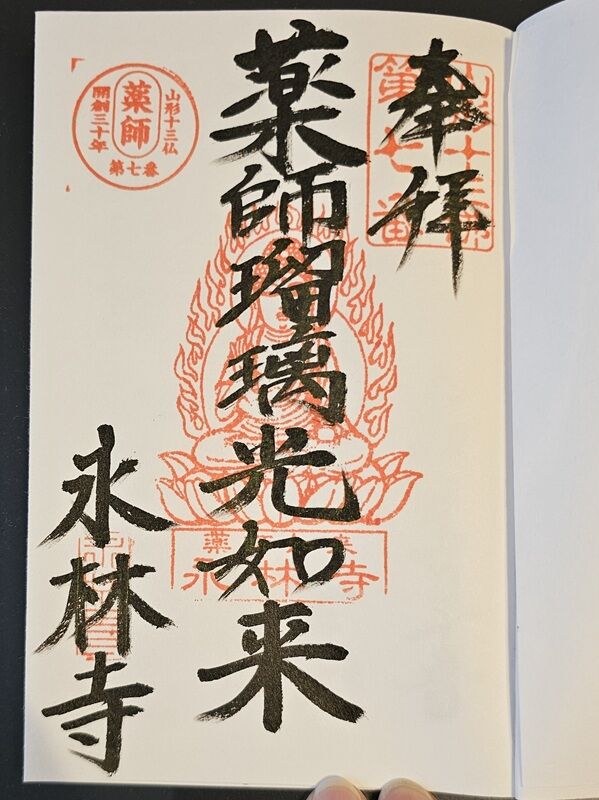 奉拝
第七番
薬師瑠璃光如来
永林寺
永林寺
山形十三仏
薬師
開創三十年
第七番